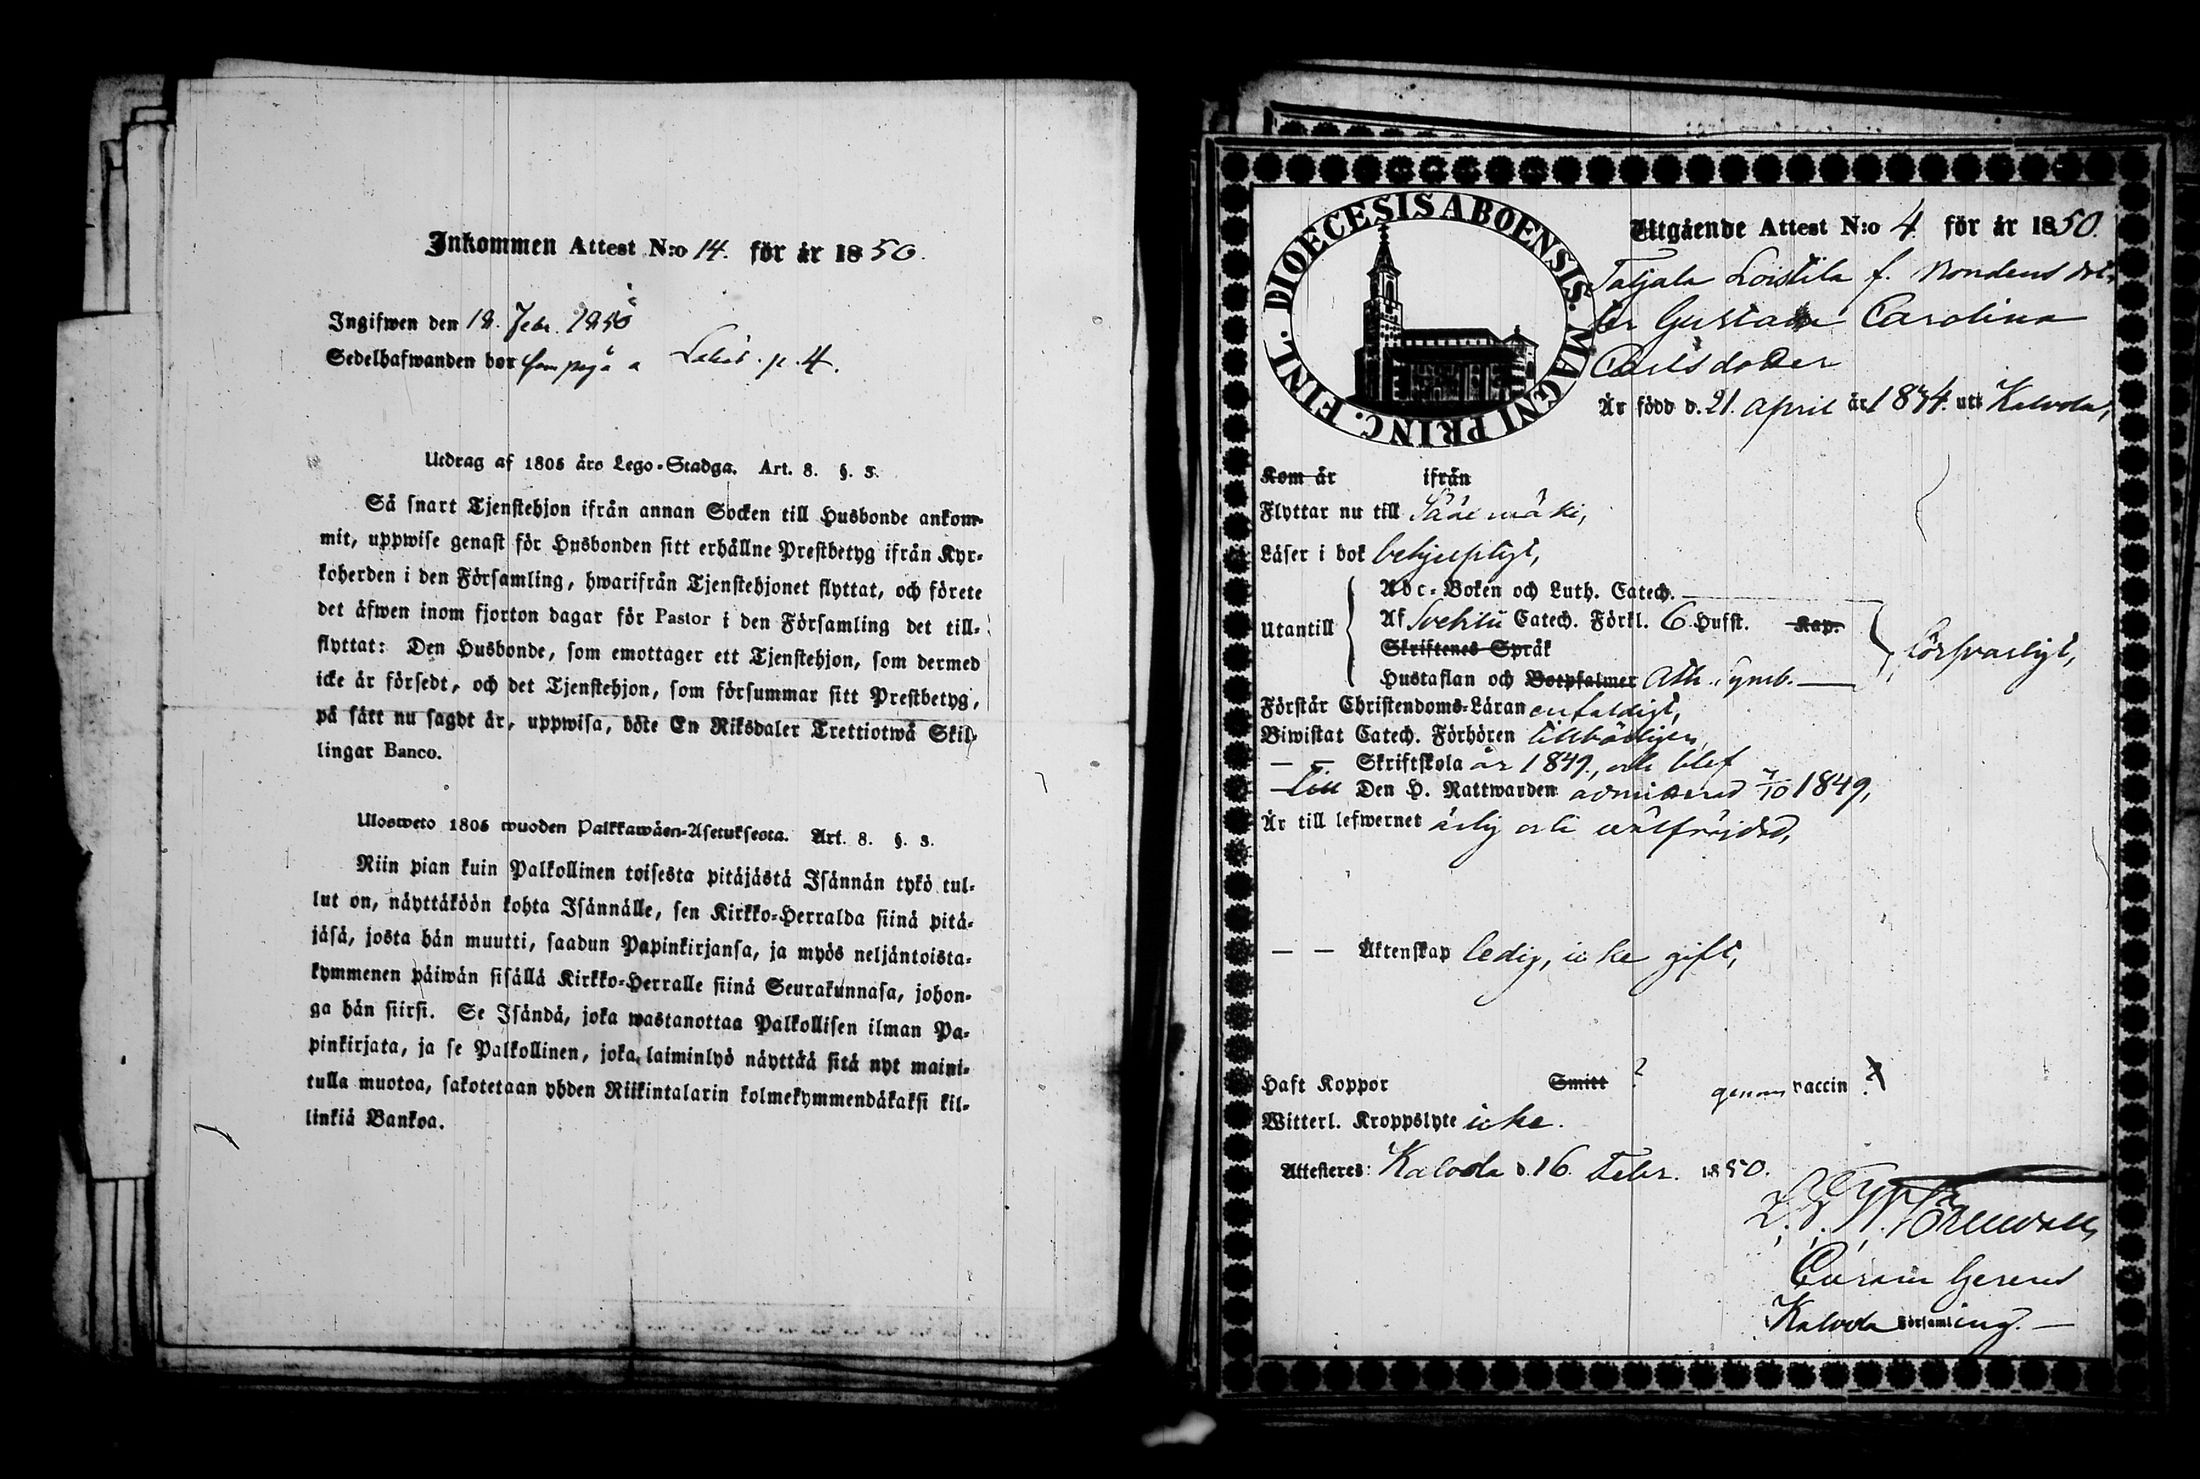 Inkommen Attest N:o 14. för år 1850.
Ingifwen den 18. Febr. 1850
Sedelhafwanden bor p. 4.
Utdrag af 1805 års Lego-Stadga. Art. 8. §. 3.
Så snart Tjenstehjon ifrån annan Socken till Husbonde ankom-
mit, uppwise genast för Husbonden sitt erhållne Prestbetyg ifrån Kyr-
koherden i den Församling, hwarifrån Tjenstehjonet flyttat, och förete
det äfwen inom fjorton dagar för Pastor i den Församling det till-
flyttat: Den Husbonde, som emottager ett Tjenstehjon, som dermed
icke är försedt, och det Tjenstehjon, som försummar sitt Prestbetyg,
på sått nu sagdt är, uppwisa, böte En Riksdaler Trettiotwå Skil-
lingar Banco.
Ulosweto 1805 wuoden Palkkawäen-Asetuksesta. Art. 8. §. 3.
Niin pian kuin Palkollinen toisesta pitäjästä Isännän tykö tul-
lut on, näyttäköön kohta Isännälle, sen Kirkko-Herralda siinä pitä-
jäsä, josta hän muutti, saadun Papinkirjansa, ja myös neljäntoista-
kymmenen päiwän sisällä Kirkko-Herralle siinä Seurakunnasa, johon-
ga hän siirsi. Se Isändä, joka wastanottaa Palkollisen ilman Pa-
pinkirjata, ja se Palkollinen, joka laiminlyö näyttää sitä nyt maini-
tulla muotoa, sakotetaan yhden Riikintalarin kolmekymmendäkaksi kil-
linkiä Bankoa.
DIOECESIS ABOENSIS. MAGNI PRINC. FINL.
Utgående Attest N:o 4 för år 1850.
Taljala Loistila f. Bondens dot-
ter Gustava Carolina
Carlsdotter
Är född d. 21. April år 1834. uti Kalvola,
Kom år ifrån
Flyttar nu till Sääxmäki,
Läser i bok behjelpligt,
Abc-Boken och Luth. Catech.
Utantill Af Svebilii Catech. Förkl. 6 Hufst. Kap.
Skriftenes Språk försvarligt,
Hustaflan och Botpsalmer Ath. Symb.
Förstår Christendoms-Läran enfaldigt,
Biwistat Catech. Förhören tillbörligen
— — Skriftskola år 1849., och blef
till Den H. Nattwarden admitterad 7/10 1849,
Är till lefwernet ärlig och wälfräjdad,
— — Äktenskap ledig, icke gift,
Haft Koppor Smitt ? genom vaccin
Witterl. Kroppslyte icke.
Attesteras: Kalvola d. 16. Febr. 1850.
Curam Gerens
Kalvola Församling.